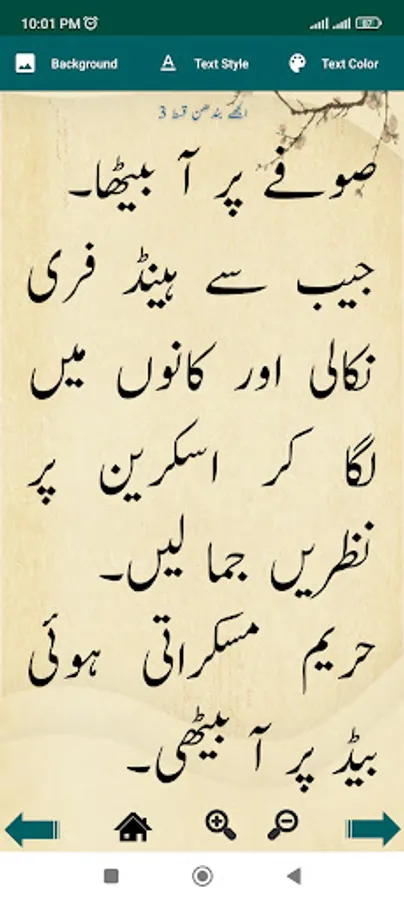 10:01 PM
87
Background
Text Style
Text Color
الجھے بندھن قسط 3
صوفے پر آ بیٹھا۔
جیب سے ہینڈ فری
نکالی اور کانوں میں
لگا کر اسکرین پر
نظریں جما لیں۔
حریم مسکراتی ہوئی
بیڈ پر آ بیٹھی۔